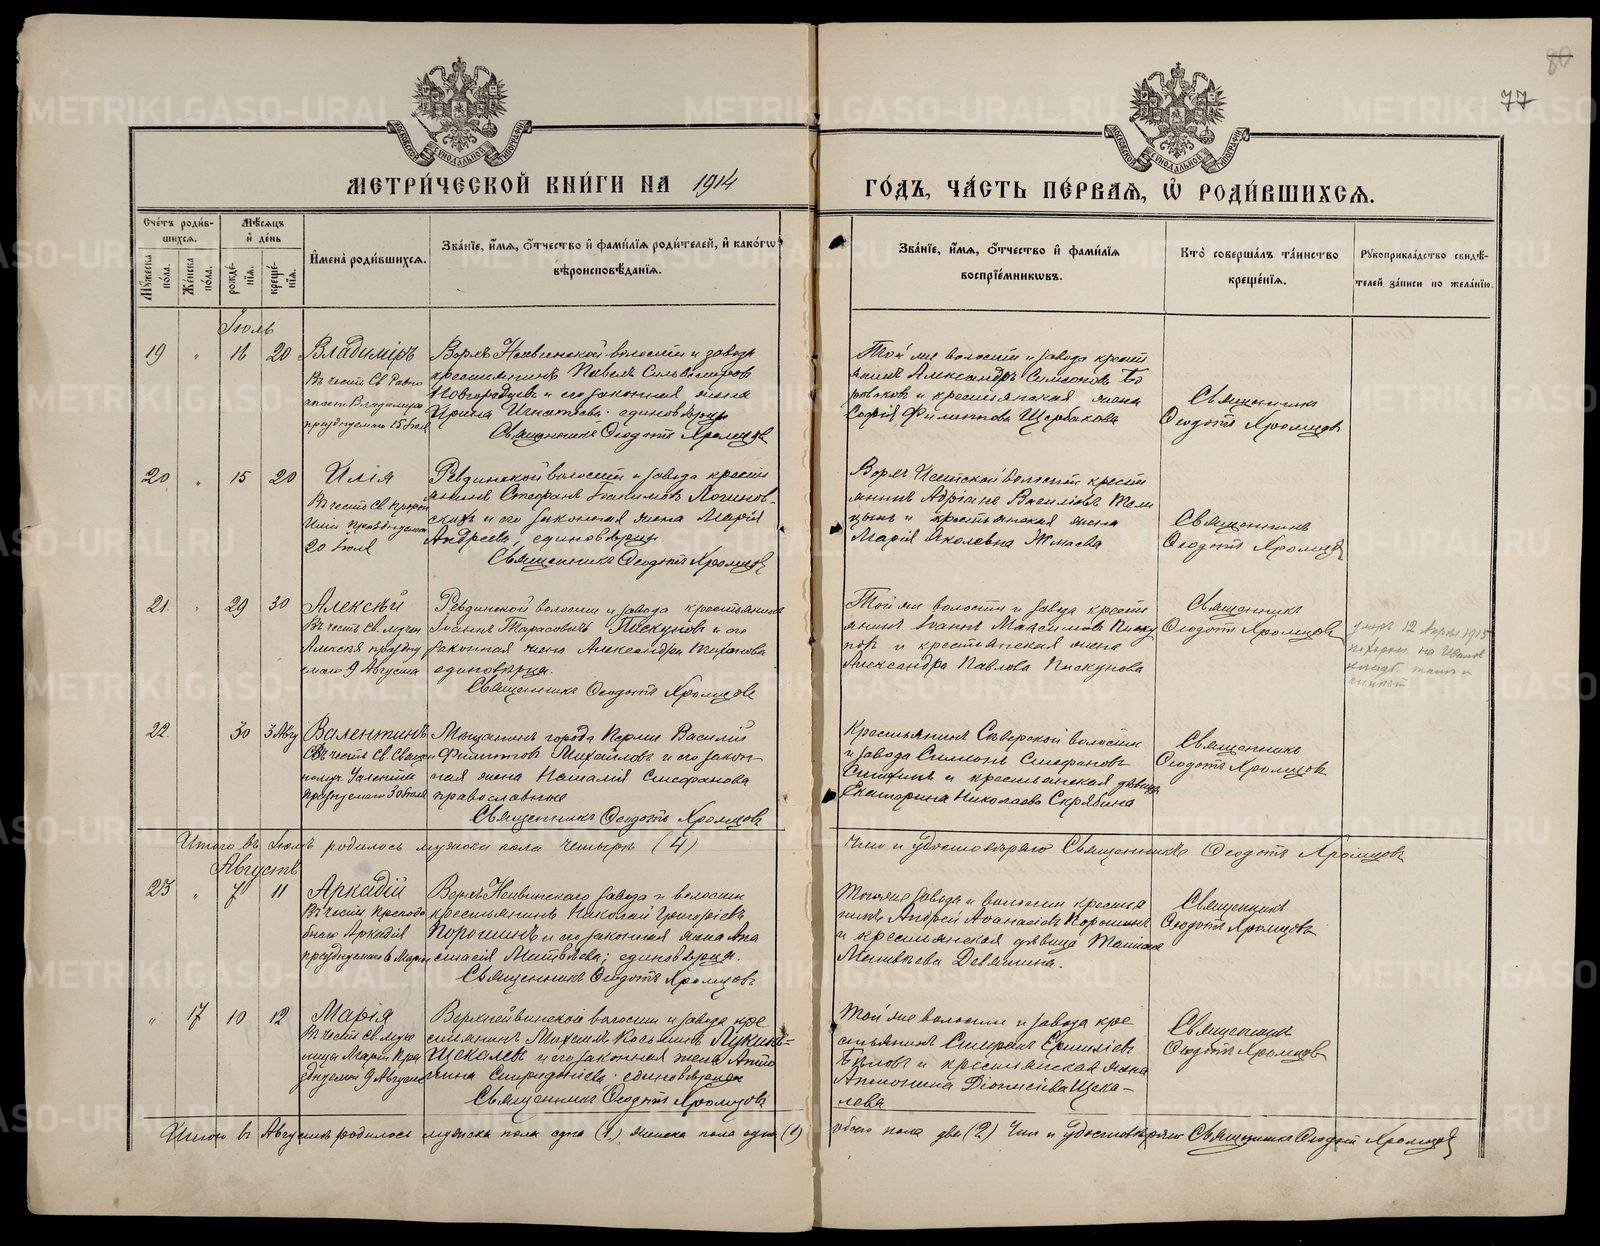 80
77
МОСКОВСКОЙ СѴНОДАЛЬНОЙ ТИПОГРАФІИ
МОСКОВСКОЙ СѴНОДАЛЬНОЙ ТИПОГРАФІИ
МЕТРИ́ЧЕСКОЙ КНИ́ГИ НА 1914
ГО́ДЪ, ЧА́СТЬ ПЕ́РВАЯ, Ѡ҆ РОДИ́ВШИХСЯ.
Сче́тъ роди́в-
шихся.
Мѣ́сяцъ
и҆ де́нь
Мꙋ́жеска
по́ла.
Же́нска
по́ла.
рожде́-
нїѧ.
креще́-
нїѧ.
И҆мена̀ роди́вшихся.
Зва́нїе, и҆́мя, ѻ҆́тчество и҆ фами́лїя роди́телей, и҆ како́гѡ
вѣроисповѣ́данїя.
Зва́нїе, и҆́мя, ѻ҆́тчество и҆ фами́лїя
воспрїе́мникѡвъ.
Кто̀ соверша́лъ та́инство
креще́нїя.
Рꙋкоприкла́дство свидѣ́-
телей за́писи по жела́нїю.
Іюль
19 " 16 20 Владиміръ
Въ честь Св Равно
апост Владиміра
празднуемаго 15 Іюля
Верхъ Нейвинской волости и завода
крестьянинъ Павелъ Сильвестровъ
Новгородцевъ и его законная жена
Ирина Игнатьева единовѣрцы
Священникъ Ѳеодотъ Хромцовъ
Той же волости и завода крест
янинъ Александръ Симеоновъ
и крестьянская жена
Софія Филиппова Щербакова
Священникъ
Ѳеодотъ Хромцовъ
20 " 15 20 Илія
Въ честь Св Прор
Иліи празднуемаго
20 Іюля
Ревдинской волости и завода крест
янинъ Стефанъ Логинов-
скихъ и его законная жена Марія
Андреева, единовѣрцы
Священникъ Ѳеодотъ Хромцовъ
Верхъ волости крест
янинъ Адріанъ Васильевъ
и крестьянская жена
Марія Яковлевна
Священникъ
Ѳеодотъ Хромцовъ
21 " 29 30 Алексѣй
Въ честь Св. мучен
Алексія праздну
емаго 9 Августа
Ревдинской волости и завода крестьянинъ
Іоаннъ Тарасовичъ Пискуновъ и его
законная жена Александра
единовѣрцы.
Священникъ Ѳеодотъ Хромцовъ
Той же волости и завода крест
янинъ Іоаннъ Максимовъ Писку
новъ и крестьянская жена
Александра Павлова Пискунова
Священникъ
Ѳеодотъ Хромцовъ
умеръ 12 1915
22 30 3 Авг Валентинъ
Въ честь Св. Свящ
мучен. Уалентина
празднуемаго 30 Іюля
Мѣщанинъ города Перми Василій
Филипповъ Михайловъ и его закон-
ная жена Наталія Стефанова
православные
Священникъ Ѳеодотъ Хромцовъ
Крестьянинъ Сѣверской волости
и завода Симеонъ Стефановъ
и крестьянская дѣвица
Екатерина Николаева Скрябина
Священникъ
Ѳеодотъ Хромцовъ
Итого въ Іюлѣ родилось мужеска пола четыре (4)
Чимъ и удостовѣряю Священникъ Ѳеодотъ Хромцовъ
Августъ
23 " 7 11 Аркадій
Въ честь Преподо
бнаго Аркадія
празднуемаго 6 Марта
Верхъ Нейвинскаго завода и волости
крестьянинъ Николай Григорьевъ
Порошинъ и его законная жена Ана
стасія Матвѣева; единовѣрцы.
Священникъ Ѳеодотъ Хромцовъ
Того же завода и волости крестья
нинъ Андрей Аѳанасіевъ Порошинъ
и крестьянская дѣвица
Матвѣева Девяшина.
Священникъ
Ѳеодотъ Хромцовъ
" 17 10 12 Марія
Въ честь Св. муче
ницы Маріи пра
зднуемой 9 Августа
Верхнейвинской волости и завода кре
стьянинъ Михаилъ Косьминъ Лукинъ=
Щекалевъ и его законная жена Анто
нина Спиридоніева единовѣрцы
Священникъ Ѳеодотъ Хромцовъ
Той же волости и завода кре
стьянинъ Ермиліевъ
Бѣловъ и крестьянская жена
Антонина Діонисіева Щека-
лева
Священникъ
Ѳеодотъ Хромцовъ
Итого въ Августѣ родилось мужска пола одно (1), женска пола одна (1)
обоего пола два (2) Чим и удостовѣряю Священникъ Ѳеодотъ Хромцовъ
METRIKI.GASO-URAL.RU